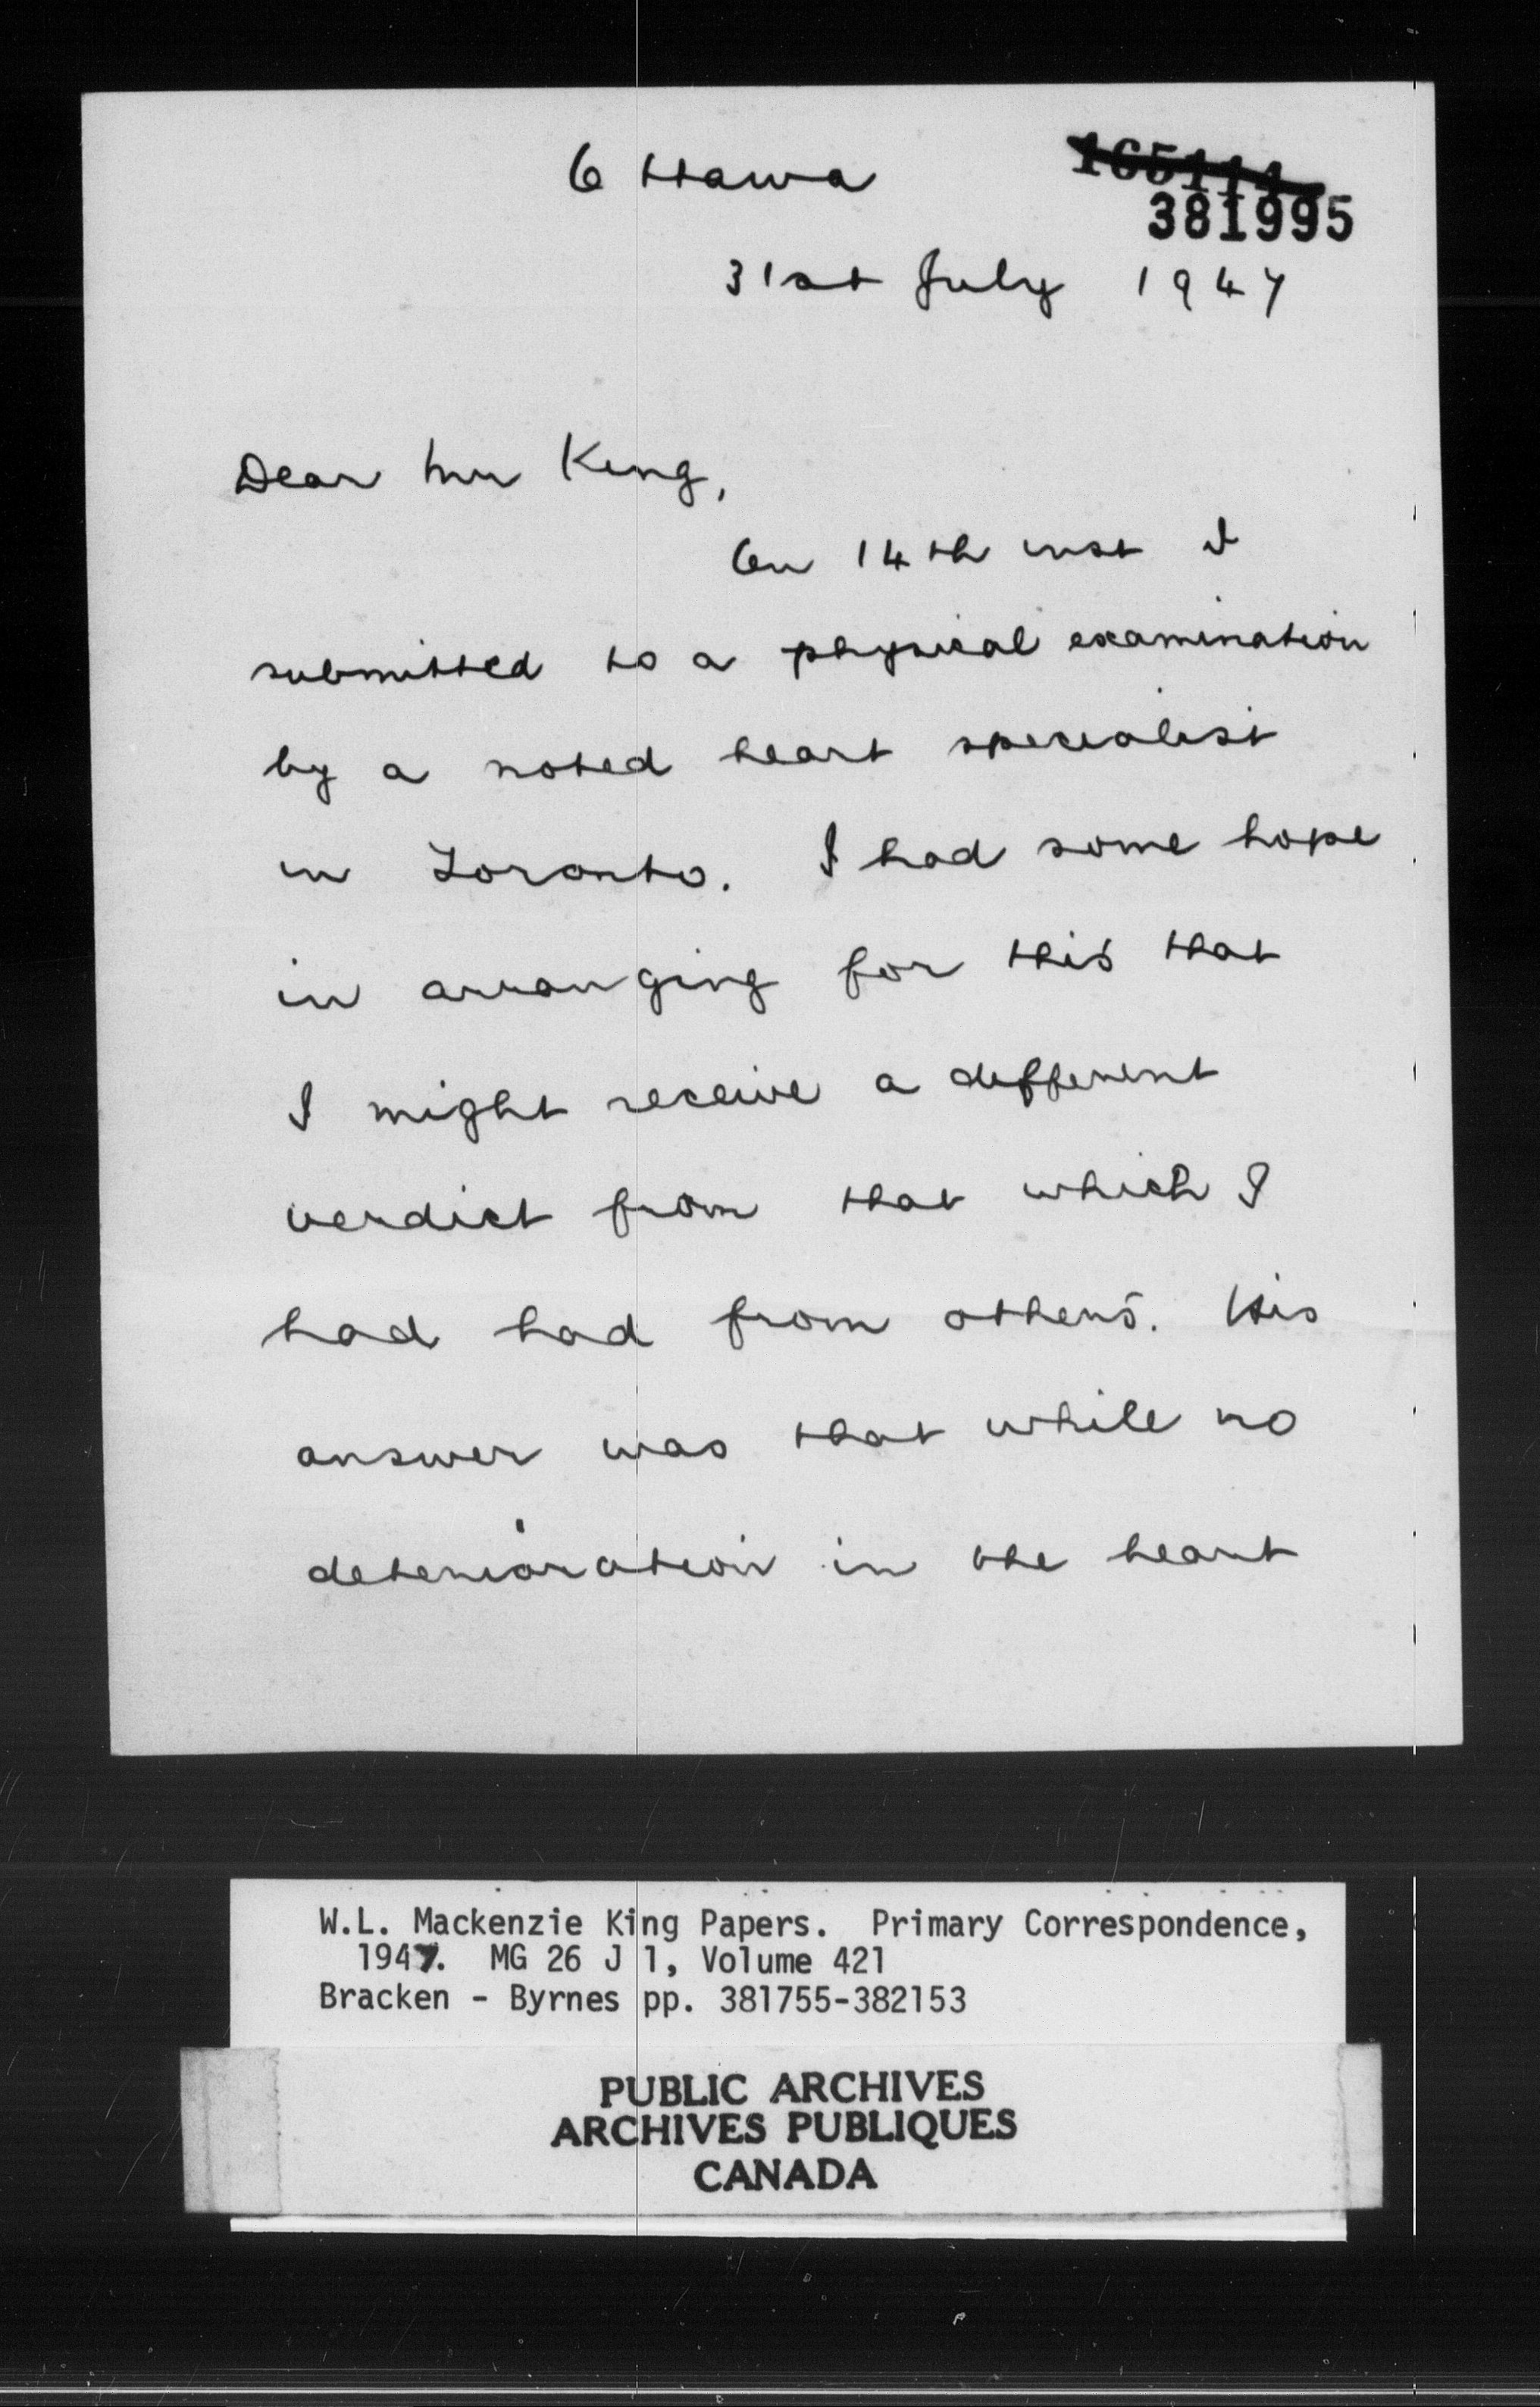 Ottawa
165111
381995
31st July 1947
Dear Mr King,
On 14th inst I
submitted to a physical examination
by a noted heart specialist
in Toronto. I had some hope
in arranging for this that
I might receive a different
verdict from that which I
had had from others. His
answer was that while no
deterioration in the heart
W.L. Mackenzie King Papers. Primary Correspondence,
1947. MG 26 J 1, Volume 421
Bracken - Byrnes pp. 381755-382153
PUBLIC ARCHIVES
ARCHIVES PUBLIQUES
CANADA